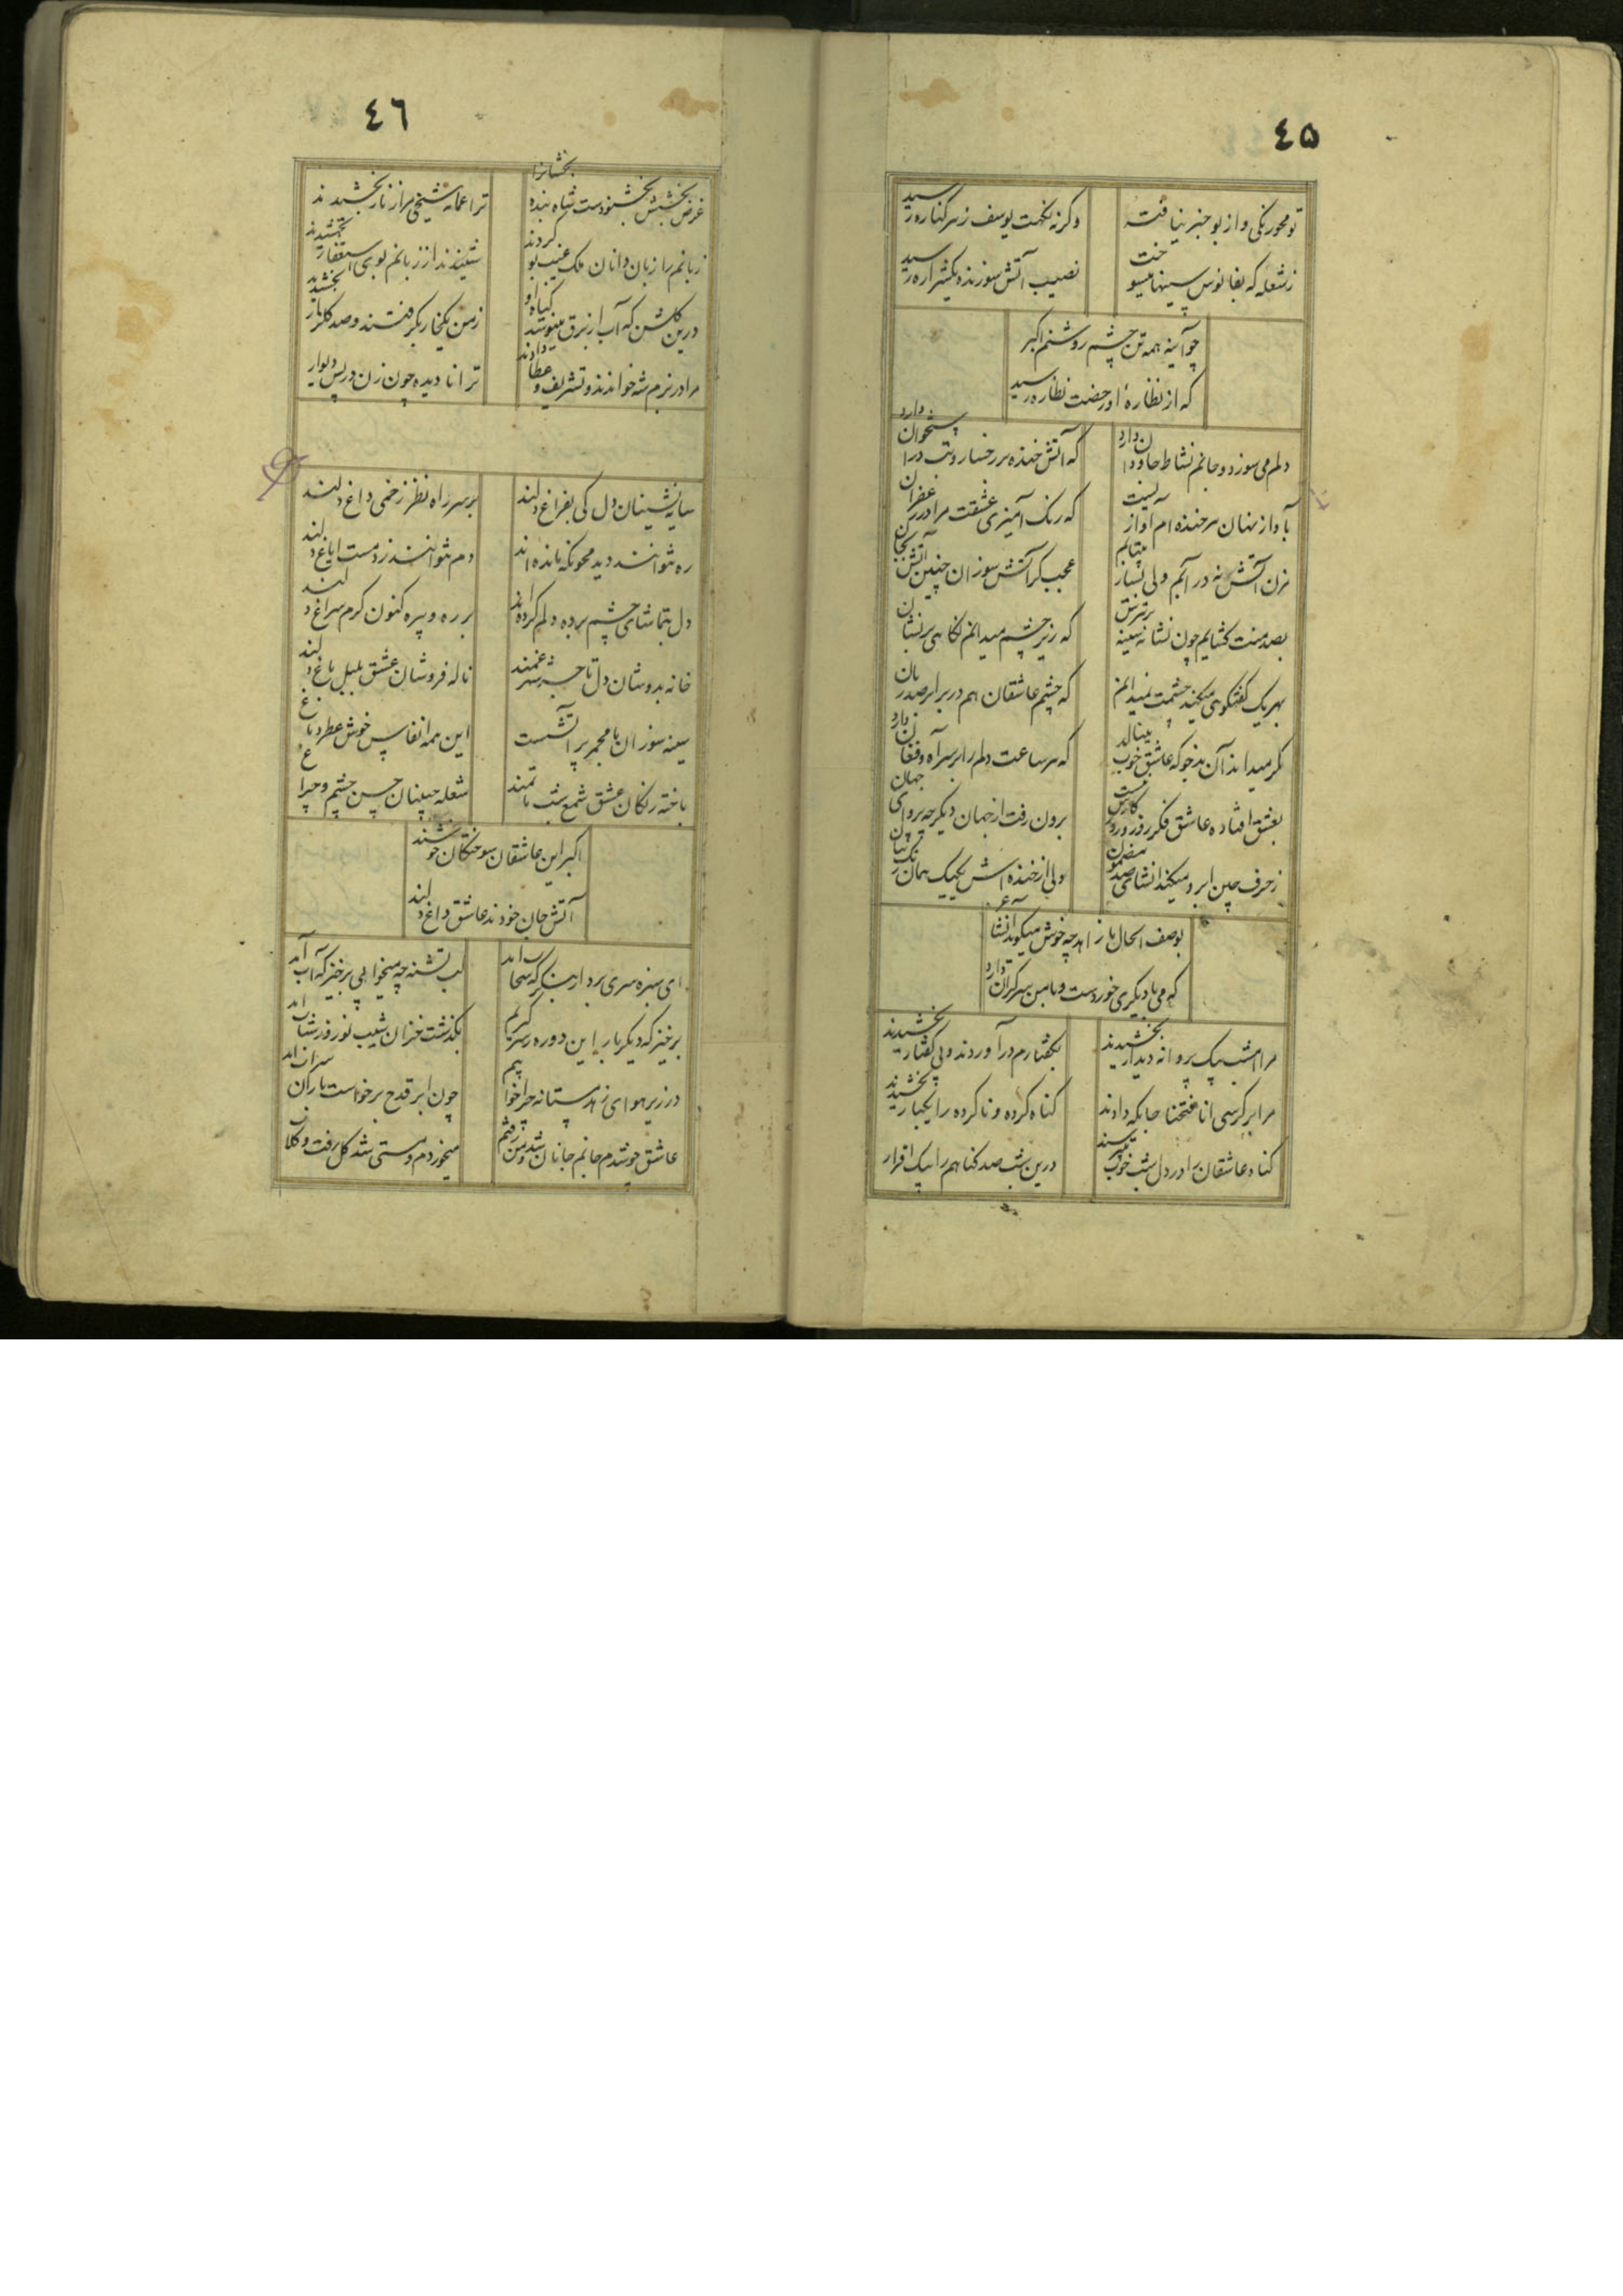 ٤۵
تو محو رنگی و از بو خبر نیافته
وگرنه نکهت یوسف ز هر کناره رسید
ز شعله که بفانوس سینها میسوخت
نصیب آتش سوزنده یکشراره رسید
چو آینه همه تن چشم روشنم اکبر
که از نظاره او رخصت نظاره رسید
دلم می سوزد و جانم نشاط جاودان دارد
که آتش خنده بر رخسار و تب در استخوان دارد
بآواز نهان هر خنده ام آواز
که رنک آمیزی عشقت مرا در زعفران
نه در آبم ولی بسیار بیتابم
عجب گر آتش سوزان چنین آتش بجان
بصد منت کشایم چون نشانه سینه بر تیرش
که زیر چشم میدانم نگاهی بر نشان
بهر یک گفتگو می میکند چشمت نمیدانم
که چشم عاشقان هم در برابر صد زبان
مگر میداند آن بدخو که عاشق خوب مینالد
که هر ساعت دلم را بر سر آه و فغان دارد
بعشق افتاده عاشق فکر روز و روزگارش نیست
برون رفت از جهان دیگر چه پروای جهان
ز حرف چین ابرو میکند انشای صد مضمون
ولی از خنده اش یکیک بیان
بوصف الحال با زاهد چه خوش میگوید انشا
که می با دیگری خوردست و با من سر گران دارد
مرا امشب بیک پروانه دیدار بخشیدند
بگفتارم درآوردند و بی گفتار بخشیدند
مرا بر کرسی انا فتحنا جایگه دادند
گناه کرده و ناکرده را یکبار بخشیدند
گناه عاشقان را در دل شب خوب
درین شب صد گناهم را بیک اقرار
٤٦
غرض بخشش بخشنودست شاه بنده بخشانرا
ترا عمامه شیخی مرا زنار بخشیدند
زبانم را زبان دانان ملک غیب بو کردند
شنیدند از زبانم بوی استغفار بخشیدند
درین گلشن که آب از برق مینوشد گیاه او
ز من یکخار بگرفتند و صد گلزار بخشید
مرا در بزم شه خواندند و تشریف و عطا دادند
ترا نادیده چون زن در پس دیوار
سایه نشینان دل کی بفراغ دلند
بر سر راه نظر زخمی داغ دلند
ره نتوانند دید محو نگه مانده اند
دم نتوانند زد مست ایاغ دلند
دل بتماشای چشم برده و گم کرده اند
بر ره و بیره کنون گرم سراغ دلند
خانه بدوشان دل تا شهر غمند
ناله فروشان عشق بلبل باغ دلند
سینه سوزان با مجمر پر آتشست
این همه انفاس خوش عطر دماغ
باخته رنگان عشق شمع شب ماتمند
شعله جبینان حسن چشم و چراغ
اکبر این عاشقان سوختگان خوشند
آتش جان خودند عاشق داغ دلند
ای سبزه سری بردار بنگر که سحاب آمد
لب تشنه چه میخوابی برخیز که آب آمد
برخیز که دیگر بار این دوره ز سر گیریم
بگذشت خزان شیب نوروز شباب آمد
در زیر هوای زهد مستانه چرا خوابیم
چون ابر قدح برخواست باران شراب آمد
عاشق خوشدم جانم جانان شد و من رفتم
میخوردم و مستی شد گل رفت و گلاب